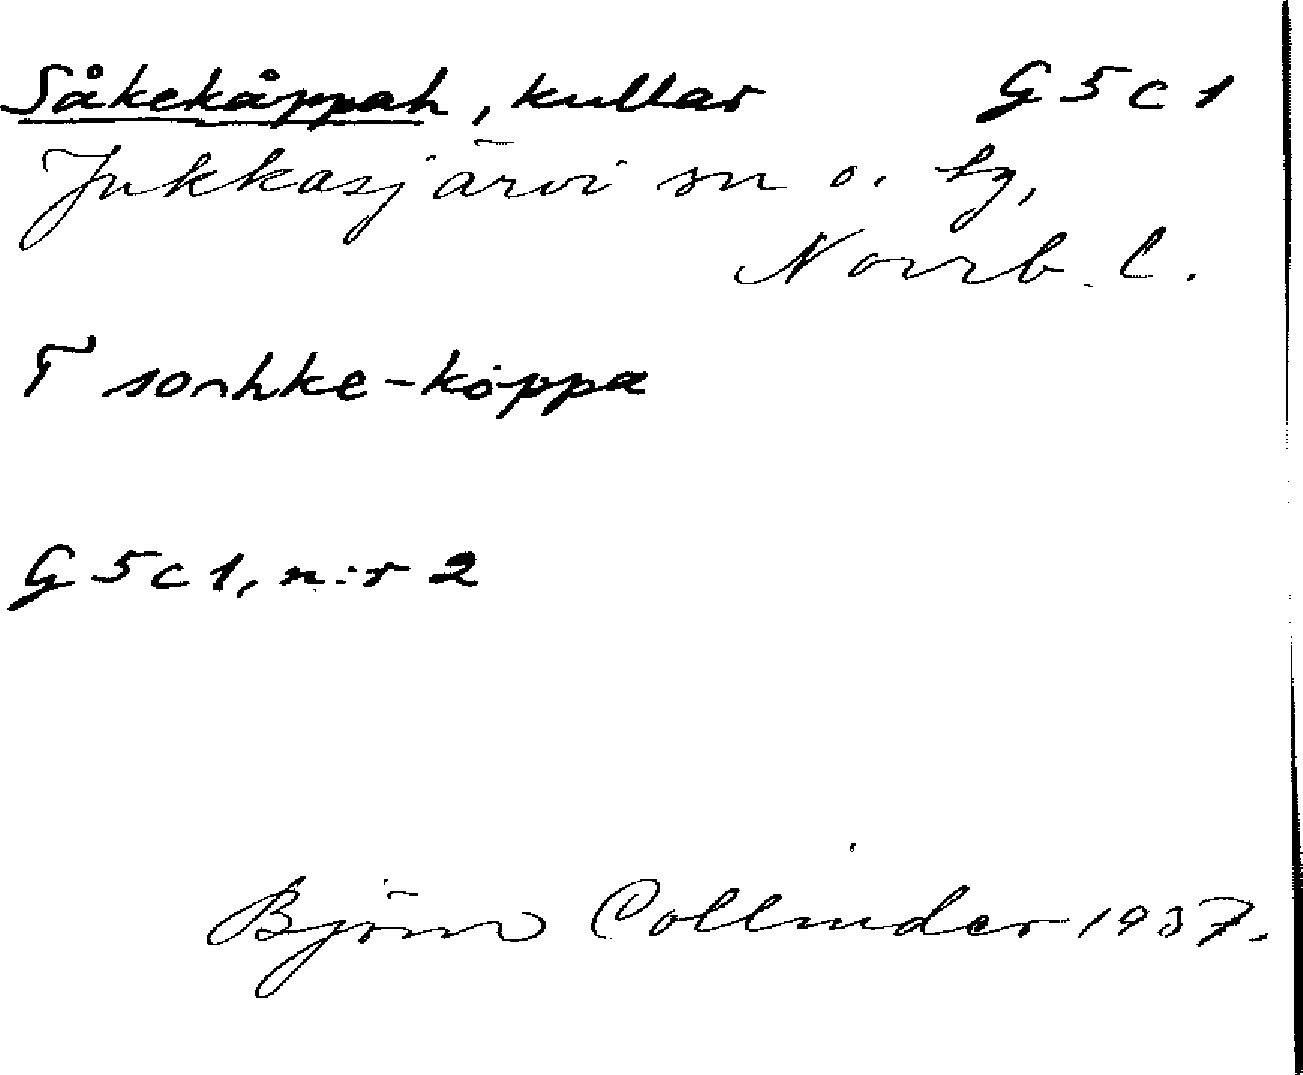 Såkekåppah, kullar G 5 c 1
Jukkasjärvi sn o. lg,
Norrb. l.
T sonhke-kȯppa
G 5 c 1, n:r 2
Björn Collinder 1937.